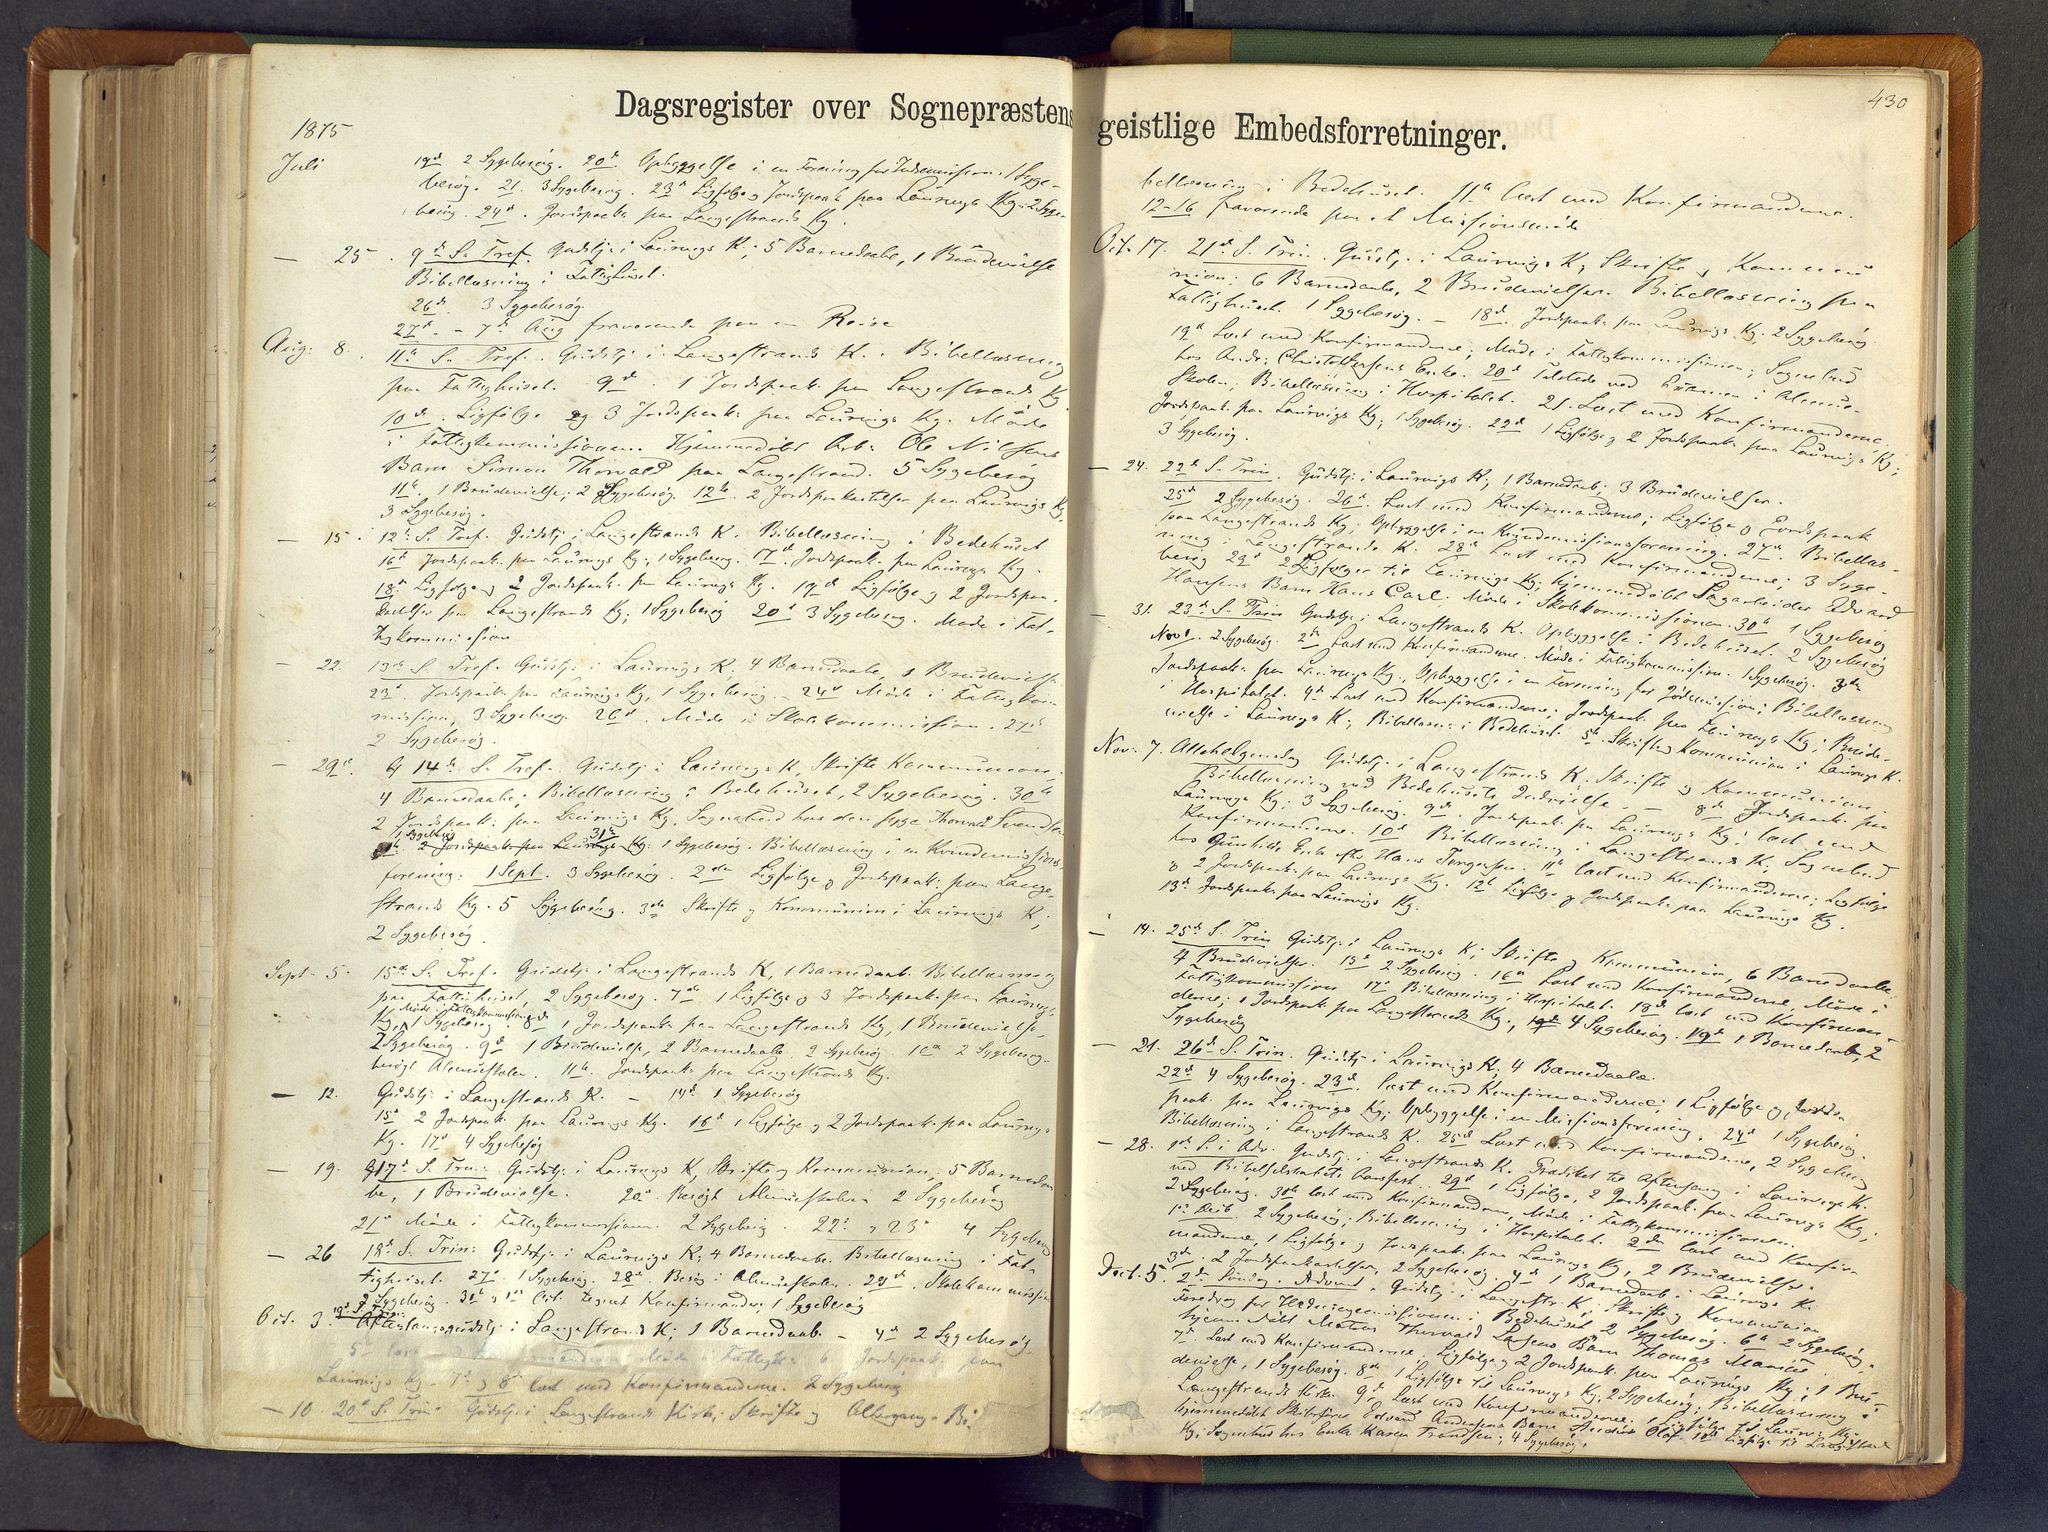 Dagsregister over Sognepræstens geistlige Embedsforretninger.
430
1875
Juli 19d 2 Sygebesøg. 20d Opbyggelse i en Forening for Indremission, 1 Syge-
besøg. 21. 3 Sygebesøg. 23d Ligfølge og Jordspaak. paa Laurvigs Kg. 2 Syge-
besøg. 24d. Jordspaak. paa Langestrands Kg.
— 25. 9de S. Tref. Gudstj. i Laurvigs K; 5 Barnedaabe, 1 Brudevielse
Bibellæsning i Fattighuset.
26d. 3 Sygebesøg.
27d. – 7d Aug fraværende paa en Reise
Aug: 8. 11te S. Tref. Gudstj. i Langestrands K. Bibellæsning
paa Fattighuset. 9d. 1 Jordspaak. paa Langestrands Kg.
10de. Ligfølge og 3 Jordspaak. paa Laurvigs Kg. Møde
i Fattigkommissionen. Hjemmedøbt Arb. Ole Nilsens
Barn Simon Thorvald paa Langestrand. 5 Sygebesøg
11te. 1 Brudevielse; 2 Sygebesøg. 12te. 2 Jordspaakastelser paa Laurvigs Kg,
3 Sygebesøg.
— 15. 12te S. Tref. Gudstj. i Langestrands K. Bibellæsning i Bedehuset
16de Jordspaak. paa Laurvigs Kg. 1 Sygebesøg. 17d. Jordspaak. paa Laurvigs Kg.
18d Ligfølge og 2 Jordspaak. paa Laurvigs Kg. 19d Ligfølge og 2 Jordspaa-
kastelser paa Langestrands Kg; 1 Sygebesøg 20d 3 Sygebesøg. Møde i Fat-
tigkommission
— 22. 13de S. Tref. Gudstj. i Laurvigs K; 4 Barnedaabe, 1 Brudevielse
23d. Jordspaak. paa Laurvigs Kg, 1 Sygebesøg. – 24d Møde i Fattigkom-
mission, 3 Sygebesøg. 26d. Møde i Skolekommission. 27d
2 Sygebesøg.
— 29d. 14de S. Tref. Gudstj. i Laurvigs K, Skrifte Kommunion,
4 Barnedaabe; Bibellæsning i Bedehuset, 2 Sygebesøg. 30te
2 Jordspaak. paa Laurvigs Kg. Sognebud hos den syge Thorvald Svendsen
1 Sygebesøg
2 Jordspaak. paa Laurvigs Kg. 31te 1 Sygebesøg. Bibellæsning i en Kvindemissions-
forening. 1 Sept. 3 Sygebesøg. 2den Ligfølge og Jordspaak. paa Lange-
strands Kg. 5 Sygebesøg. 3de Skrifte og Kommunion i Laurvigs K,
2 Sygebesøg.
Sept. 5. 15d S. Tref. Gudstj. i Langestrands K, 1 Barnedaab. Bibellæsning
paa Fattighuset, 2 Sygebesøg. 7de. 1 Ligfølge og 3 Jordspaak. paa Laurvigs
Møde i Fattigkommission
Kg, 1 Sygebesøg. 8de 1 Jordspaak. paa Langestrands Kg, 1 Brudevielse,
2 Sygebesøg. 9d 1 Brudevielse, 2 Barnedaabe. 2 Sygebesøg 10d 2 Sygebesøg.
besøgt Almueskolen. 11te. Jordspaak. paa Langestrands Kg.
— 12. Gudstj. i Langestrands K. – 14d 1 Sygebesøg
15d 2 Jordspaak. paa Laurvigs Kg. 16d 1 Ligfølge og 2 Jordspaak. paa Laurvigs
Kg. 17d 4 Sygebesøg
— 19. 17d S. Trin: Gudstj. i Laurvigs K, Skrifte og Kommunion, 5 Barnedaa-
be, 1 Brudevielse. 20d. Besøgt Almueskolen 2 Sygebesøg
21d Møde i Fattigkommissionen 2 Sygebesøg. 22d og 23d 4 Sygebesøg
— 26 18d S. Trin: Gudstj. i Laurvigs K; 4 Barnedaabe. Bibellæsning i Fat-
tighuset. 27d. 1 Sygebesøg. 28d. Besøg i Almueskolen. 29d. Skolekommission
2 Sygebesøg. og 1ste Oct. Konfirmander; 1 Sygebesøg
19d S. Trin.
Oct. 3. Aftensangsgudstj. i Langestrands K; 1 Barnedaab. – 4d 2 Sygebesøg
5d læst med Konfirmandene Møde i Fattigk. 6 Jordspaak. paa
Laurvigs Kg. 7d og 8d læst med Konfirmandene. 2 Sygebesøg
— 10. 20d S. Trin. Gudstj. i Langestrands Kirke; Skrifte og Altergang. Bi-
bellæsning i Bedehuset. 11te læst med Konfirmandene.
12–16 fraværende paa et Missionsmøde
Oct. 17. 21d S. Trin. Gudstj. i Laurvigs K; Skrifte og Kommu-
nion. 6 Barnedaabe, 2 Brudevielser. Bibellæsning paa
Fattighuset. 1 Sygebesøg. – 18d. Jordspaak. paa Laurvigs Kg. 2 Sygebesøg
19d Læst med Konfirmandene; Møde i Fattigkommissionen; Sognebud
hos Andr: Christoffersens Enke. 20d tilstede ved Examen i Almue-
skolen; Bibellæsning i Hospitalet. 21. Læst med Konfirmandene.
Jordspaak. paa Laurvigs Kg; 1 Sygebesøg. 22d 1 Ligfølge og 2 Jordspaak. paa Laurvigs Kg;
3 Sygebesøg.
— 24. 22d S. Trin. Gudstj. i Laurvigs K; 1 Barnedaab; 3 Brudevielser.
25d 2 Sygebesøg 26d. Læst med Konfirmandene; Ligfølge og Jordspaak
paa Langestrands Kg; Opbyggelse i en Kvindemissionsforening. 27d Bibellæs-
ning i Langestrands K. 28d Læst med Konfirmandene; 3 Syge-
besøg 29d 2 Ligfølger til Laurvigs Kg; hjemmedøbt Sagarbeider Edvard
Hansens Barn Hans Carl. Møde i Skolekommissionen. 30te 1 Sygebesøg
— 31. 23d S. Trin Gudstj. i Langestrands K. Opbyggelse i Bedehuset. 2 Sygebesøg
Nov 1. 2 Sygebesøg. 2den Læst med Konfirmandene. Møde i Fattigkommission. 1 Sygebesøg. 3de
Jordspaak. paa Laurvigs Kg, Opbyggelse i en Forening for Jødemission; Bibellæsning
i Hospitalet. 4d Læst med Konfirmandene; Jordspaak. paa Laurvigs Kg; Brude-
vielse i Laurvigs K; Bibellæsn. i Bedehuset. 5te Skrifte og Kommunion i Laurvigs K.
Nov. 7. Allehelgensdag Gudstj. i Langestrands K. Skrifte og Kommunion
Bibellæsning ved Bedehusets Indvielse. – 8d Jordspaak. paa
Laurvigs Kg; 3 Sygebesøg. 9de. Jordspaak. paa Laurvigs Kg; læst med
Konfirmandene. 10d Bibellæsning i Langestrands K; Sognebud
hos Gunhilde Enke efter Hans Jørgensen. 11te læst med Konfirmandene; Ligfølge
og 2 Jordspaak. paa Laurvigs Kg. 12te Ligfølge og Jordspaak. paa Laurvigs Kg.
13d Jordspaak. paa Laurvigs Kg.
— 14. 25de S. Trin Gudstj. i Laurvigs K; Skrifte og Kommunion, 6 Barnedaabe,
4 Brudevielser. 15d 2 Sygebesøg. 16d Læst med Konfirmandene, Møde i
Fattigkommission 17d Bibellæsning i Hospitalet. 18d læst med Konfirman-
dene; 1 Jordspaak paa Langestrands Kg., 4 Sygebesøg. 19d 1 Barnedaab, 2
Sygebesøg
— 21. 26d S. Trin. Gudstj. i Laurvigs K; 4 Barnedaabe.
22d 4 Sygebesøg. 23d. læst med Konfirmandene; 1 Ligfølge og Jords-
paak. paa Laurvigs Kg; Opbyggelse i en Missionsforening. 24d 1 Sygebesøg.
Bibellæsning i Langestrands K. 25d Læst med Konfirmandene, 2 Sygebesøg
— 28. 1ste S. i Adv. Gudstj. i Langestrands K. Prædiket til Aftensang i Laurvigs K.
ved Bibelselskabets Aarsfest. 29d 1 Ligfølge, 2 Jordspaak. paa Laurvigs Kg;
2 Sygebesøg. 30te læst med Konfirmandene, Møde i Fattigkommissionen.
1ste Decb. 2 Sygebesøg; Bibellæsning i Hospitalet. 2den læst med Konfir-
mandene, 1 Ligfølge og Jordspaak. paa Laurvigs Kg, 2 Brudevielser.
3de. 2 Jordspaakastelser, 2 Sygebesøg. 4d 1 Barnedaab i Laurvigs K.
Dect. 5. 2den Søndag i Advent. Gudstj. i Langestr. K; Skrifte og Kommunion
Foredrag for Hedningemissionen i Bedehuset 2 Sygebesøg. 6te 2 Sygebesøg.
hjemmedøbt Thorvald Larsens Barn Thomas
7d. Læst med Konfirmandene. Ligfølge og 2 Jordspaak. paa Laurvigs Kg; 1 Bru-
devielse, 1 Sygebesøg. 8de 1 Ligfølge til Laurvigs Kg; 2 Sygebesøg; Bibellæsning i
Langestrands Kirke. 9d læst med Konfirmandene. 1 Ligfølge til Laurv. Kg.
hjemmedøbt Edvard Andersens Barn Olaf. 10d Ligfølge til Langestrand
Kg; Sognebud hos Enke Karen Frandsen; 4 Sygebesøg.